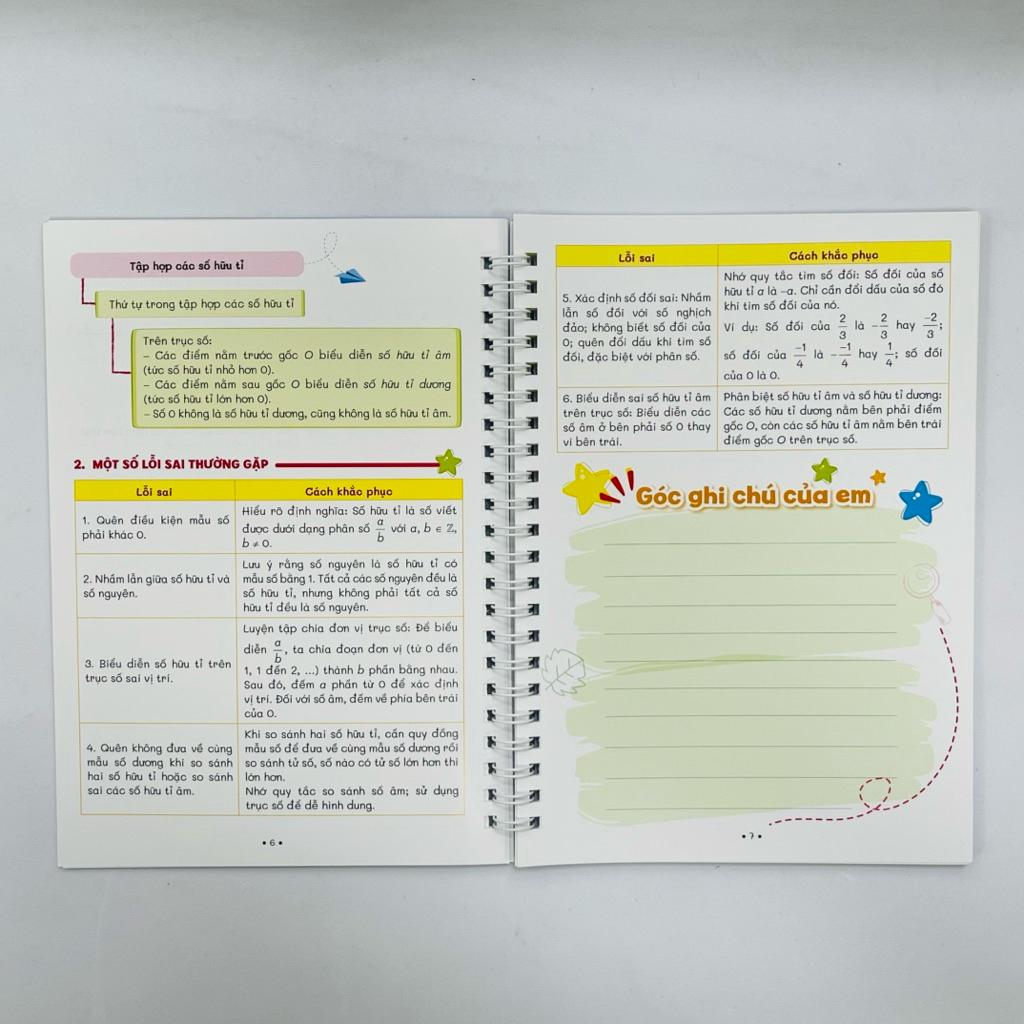 Tập hợp các số hữu tỉ
Thứ tự trong tập hợp các số hữu tỉ
Trên trục số:
– Các điểm nằm trước gốc O biểu diễn số hữu tỉ âm
(tức số hữu tỉ nhỏ hơn 0).
– Các điểm nằm sau gốc O biểu diễn số hữu tỉ dương
(tức số hữu tỉ lớn hơn 0).
– Số 0 không là số hữu tỉ dương, cũng không là số hữu tỉ âm.
2. MỘT SỐ LỖI SAI THƯỜNG GẶP
Lỗi sai
Cách khắc phục
1. Quên điều kiện mẫu số
phải khác 0.
Hiểu rõ định nghĩa: Số hữu tỉ là số viết
được dưới dạng phân số a/b với a, b ∈ ℤ,
b ≠ 0.
2. Nhầm lẫn giữa số hữu tỉ và
số nguyên.
Lưu ý rằng số nguyên là số hữu tỉ có
mẫu số bằng 1. Tất cả các số nguyên đều là
số hữu tỉ, nhưng không phải tất cả số
hữu tỉ đều là số nguyên.
3. Biểu diễn số hữu tỉ trên
trục số sai vị trí.
Luyện tập chia đơn vị trục số: Để biểu
diễn a/b, ta chia đoạn đơn vị (từ 0 đến
1, 1 đến 2, ...) thành b phần bằng nhau.
Sau đó, đếm a phần từ 0 để xác định
vị trí. Đối với số âm, đếm về phía bên trái
của 0.
4. Quên không đưa về cùng
mẫu số dương khi so sánh
hai số hữu tỉ hoặc so sánh
sai các số hữu tỉ âm.
Khi so sánh hai số hữu tỉ, cần quy đồng
mẫu số để đưa về cùng mẫu số dương rồi
so sánh tử số, số nào có tử số lớn hơn thì
lớn hơn.
Nhớ quy tắc so sánh số âm; sử dụng
trục số để dễ hình dung.
• 6 •
Lỗi sai
Cách khắc phục
5. Xác định số đối sai: Nhầm
lẫn số đối với số nghịch
đảo; không biết số đối của
0; quên đổi dấu khi tìm số
đối, đặc biệt với phân số.
Nhớ quy tắc tìm số đối: Số đối của số
hữu tỉ a là –a. Chỉ cần đổi dấu của số đó
khi tìm số đối của nó.
Ví dụ: Số đối của 2/3 là -2/3 hay -2/3;
số đối của -1/4 là --1/4 hay 1/4; số đối
của 0 là 0.
6. Biểu diễn sai số hữu tỉ âm
trên trục số: Biểu diễn các
số âm ở bên phải số 0 thay
vì bên trái.
Phân biệt số hữu tỉ âm và số hữu tỉ dương:
Các số hữu tỉ dương nằm bên phải điểm
gốc O, còn các số hữu tỉ âm nằm bên trái
điểm gốc O trên trục số.
Góc ghi chú của em
• 7 •